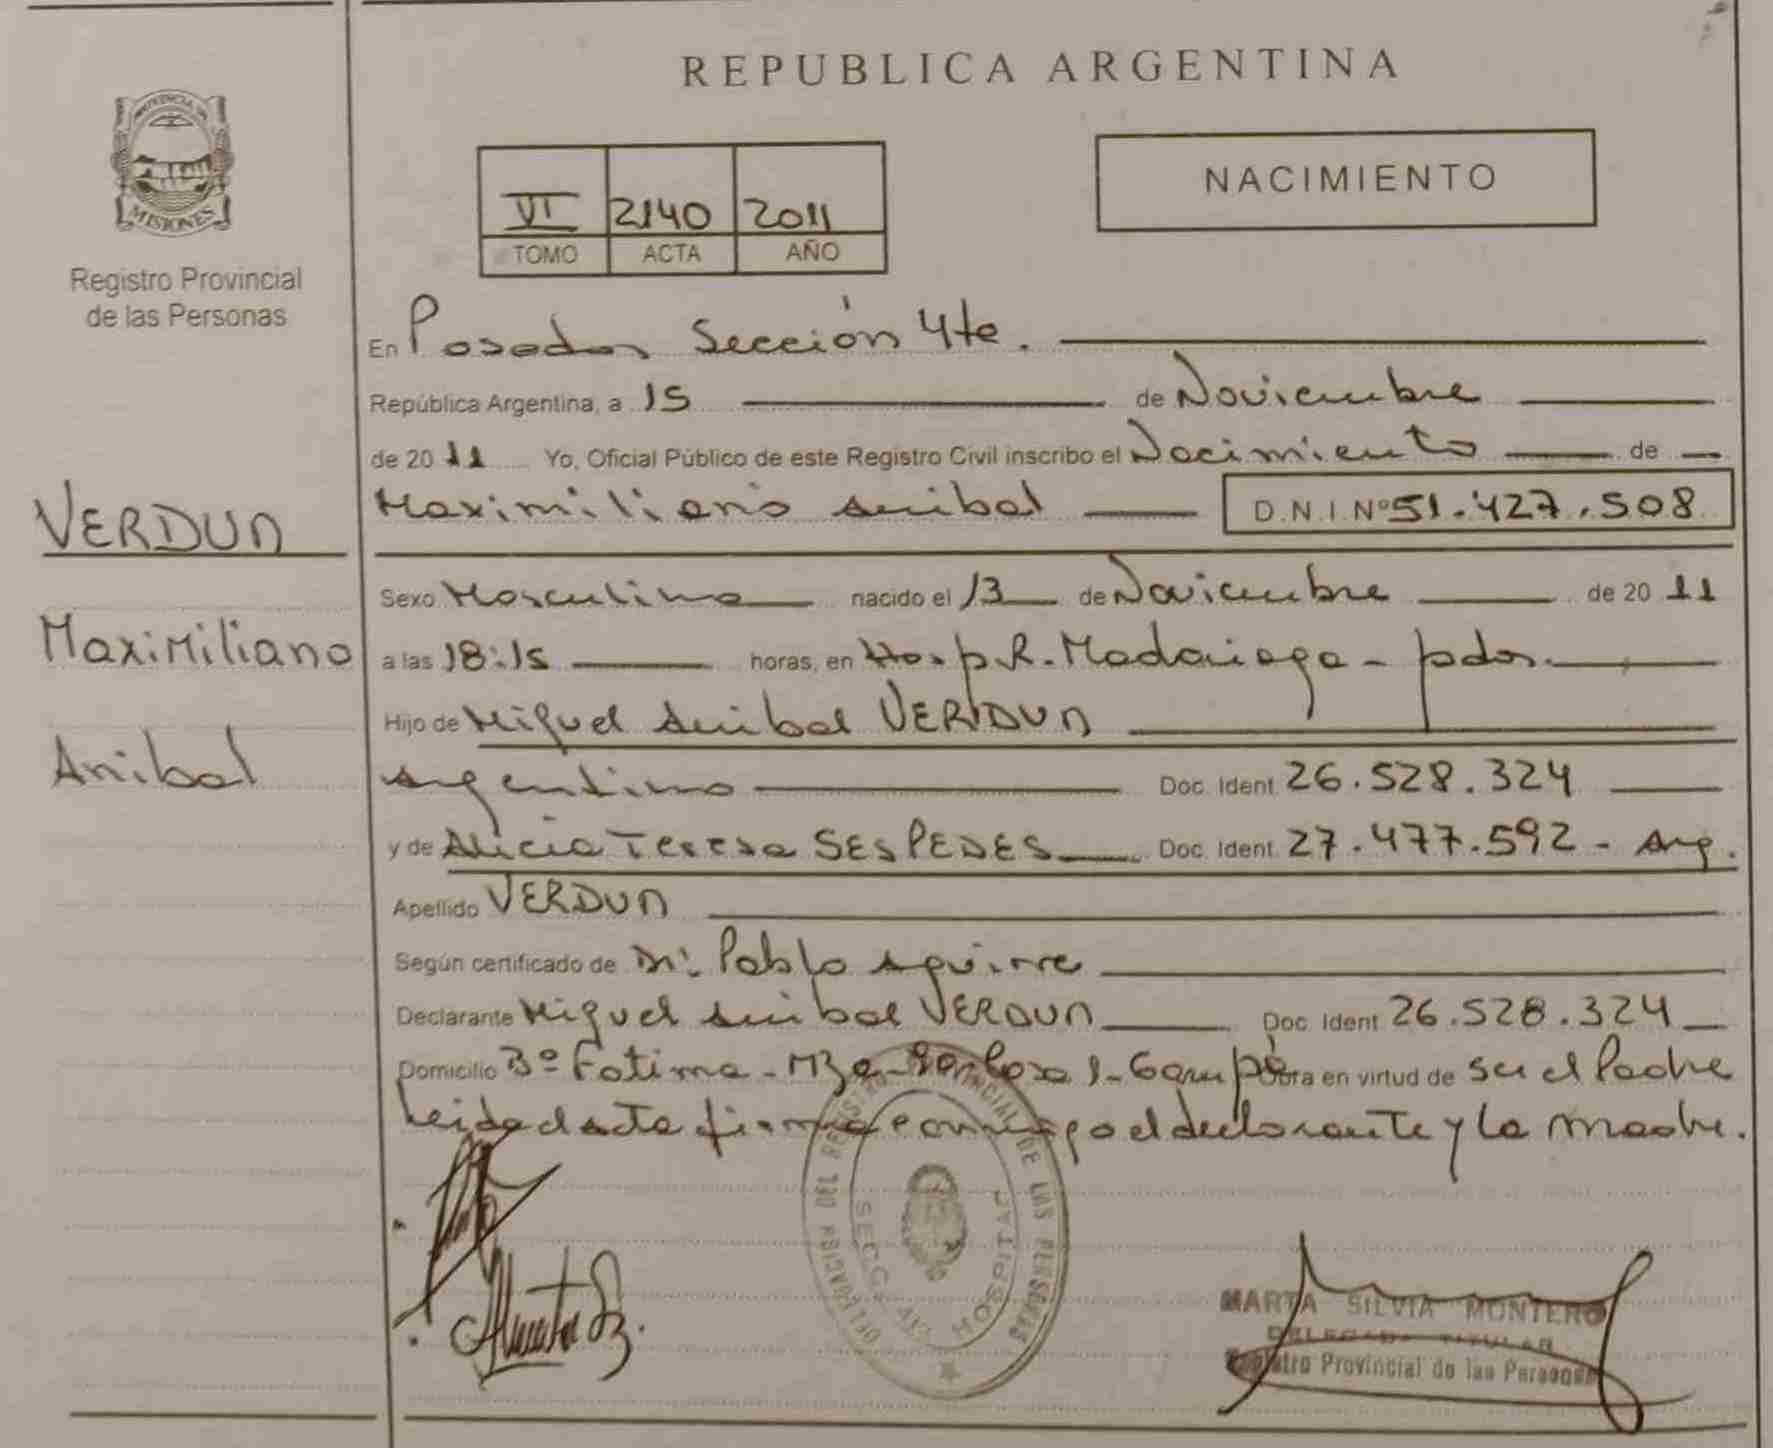 REPUBLICA ARGENTINA
PROVINCIA DE
MISIONES
Registro Provincial
de las Personas
VI 2140 2011
TOMO ACTA AÑO
NACIMIENTO
En Posadas Sección 4ta.
República Argentina, a 15 de Noviembre
de 2011 Yo, Oficial Público de este Registro Civil inscribo el Nacimiento de
Maximiliano Anibal D.N.I. Nº 51.427.508
VERDUN
Maximiliano
Anibal
Sexo Masculino nacido el 13 de Noviembre de 2011
a las 18:15 horas, en Hosp. R. Madariaga - pdas.
Hijo de Miguel Anibal VERDUN
Argentino Doc. Ident. 26.528.324
y de Alicia Teresa SESPEDES Doc. Ident. 27.477.592 - Arg.
Apellido VERDUN
Según certificado de Dr. Pablo Aguirre
Declarante Miguel Anibal VERDUN Doc Ident 26.528.324
Domicilio Bº Fatima - Mza - Garupá Obra en virtud de ser el Padre
Leida el acta firma conmigo el declarante y la madre.
DELEGACION DEL REGISTRO PROVINCIAL DE LAS PERSONAS
SECC. 4ta
HOSPITAL
MARTA SILVIA MONTERO
DELEGADA TITULAR
Registro Provincial de las Personas